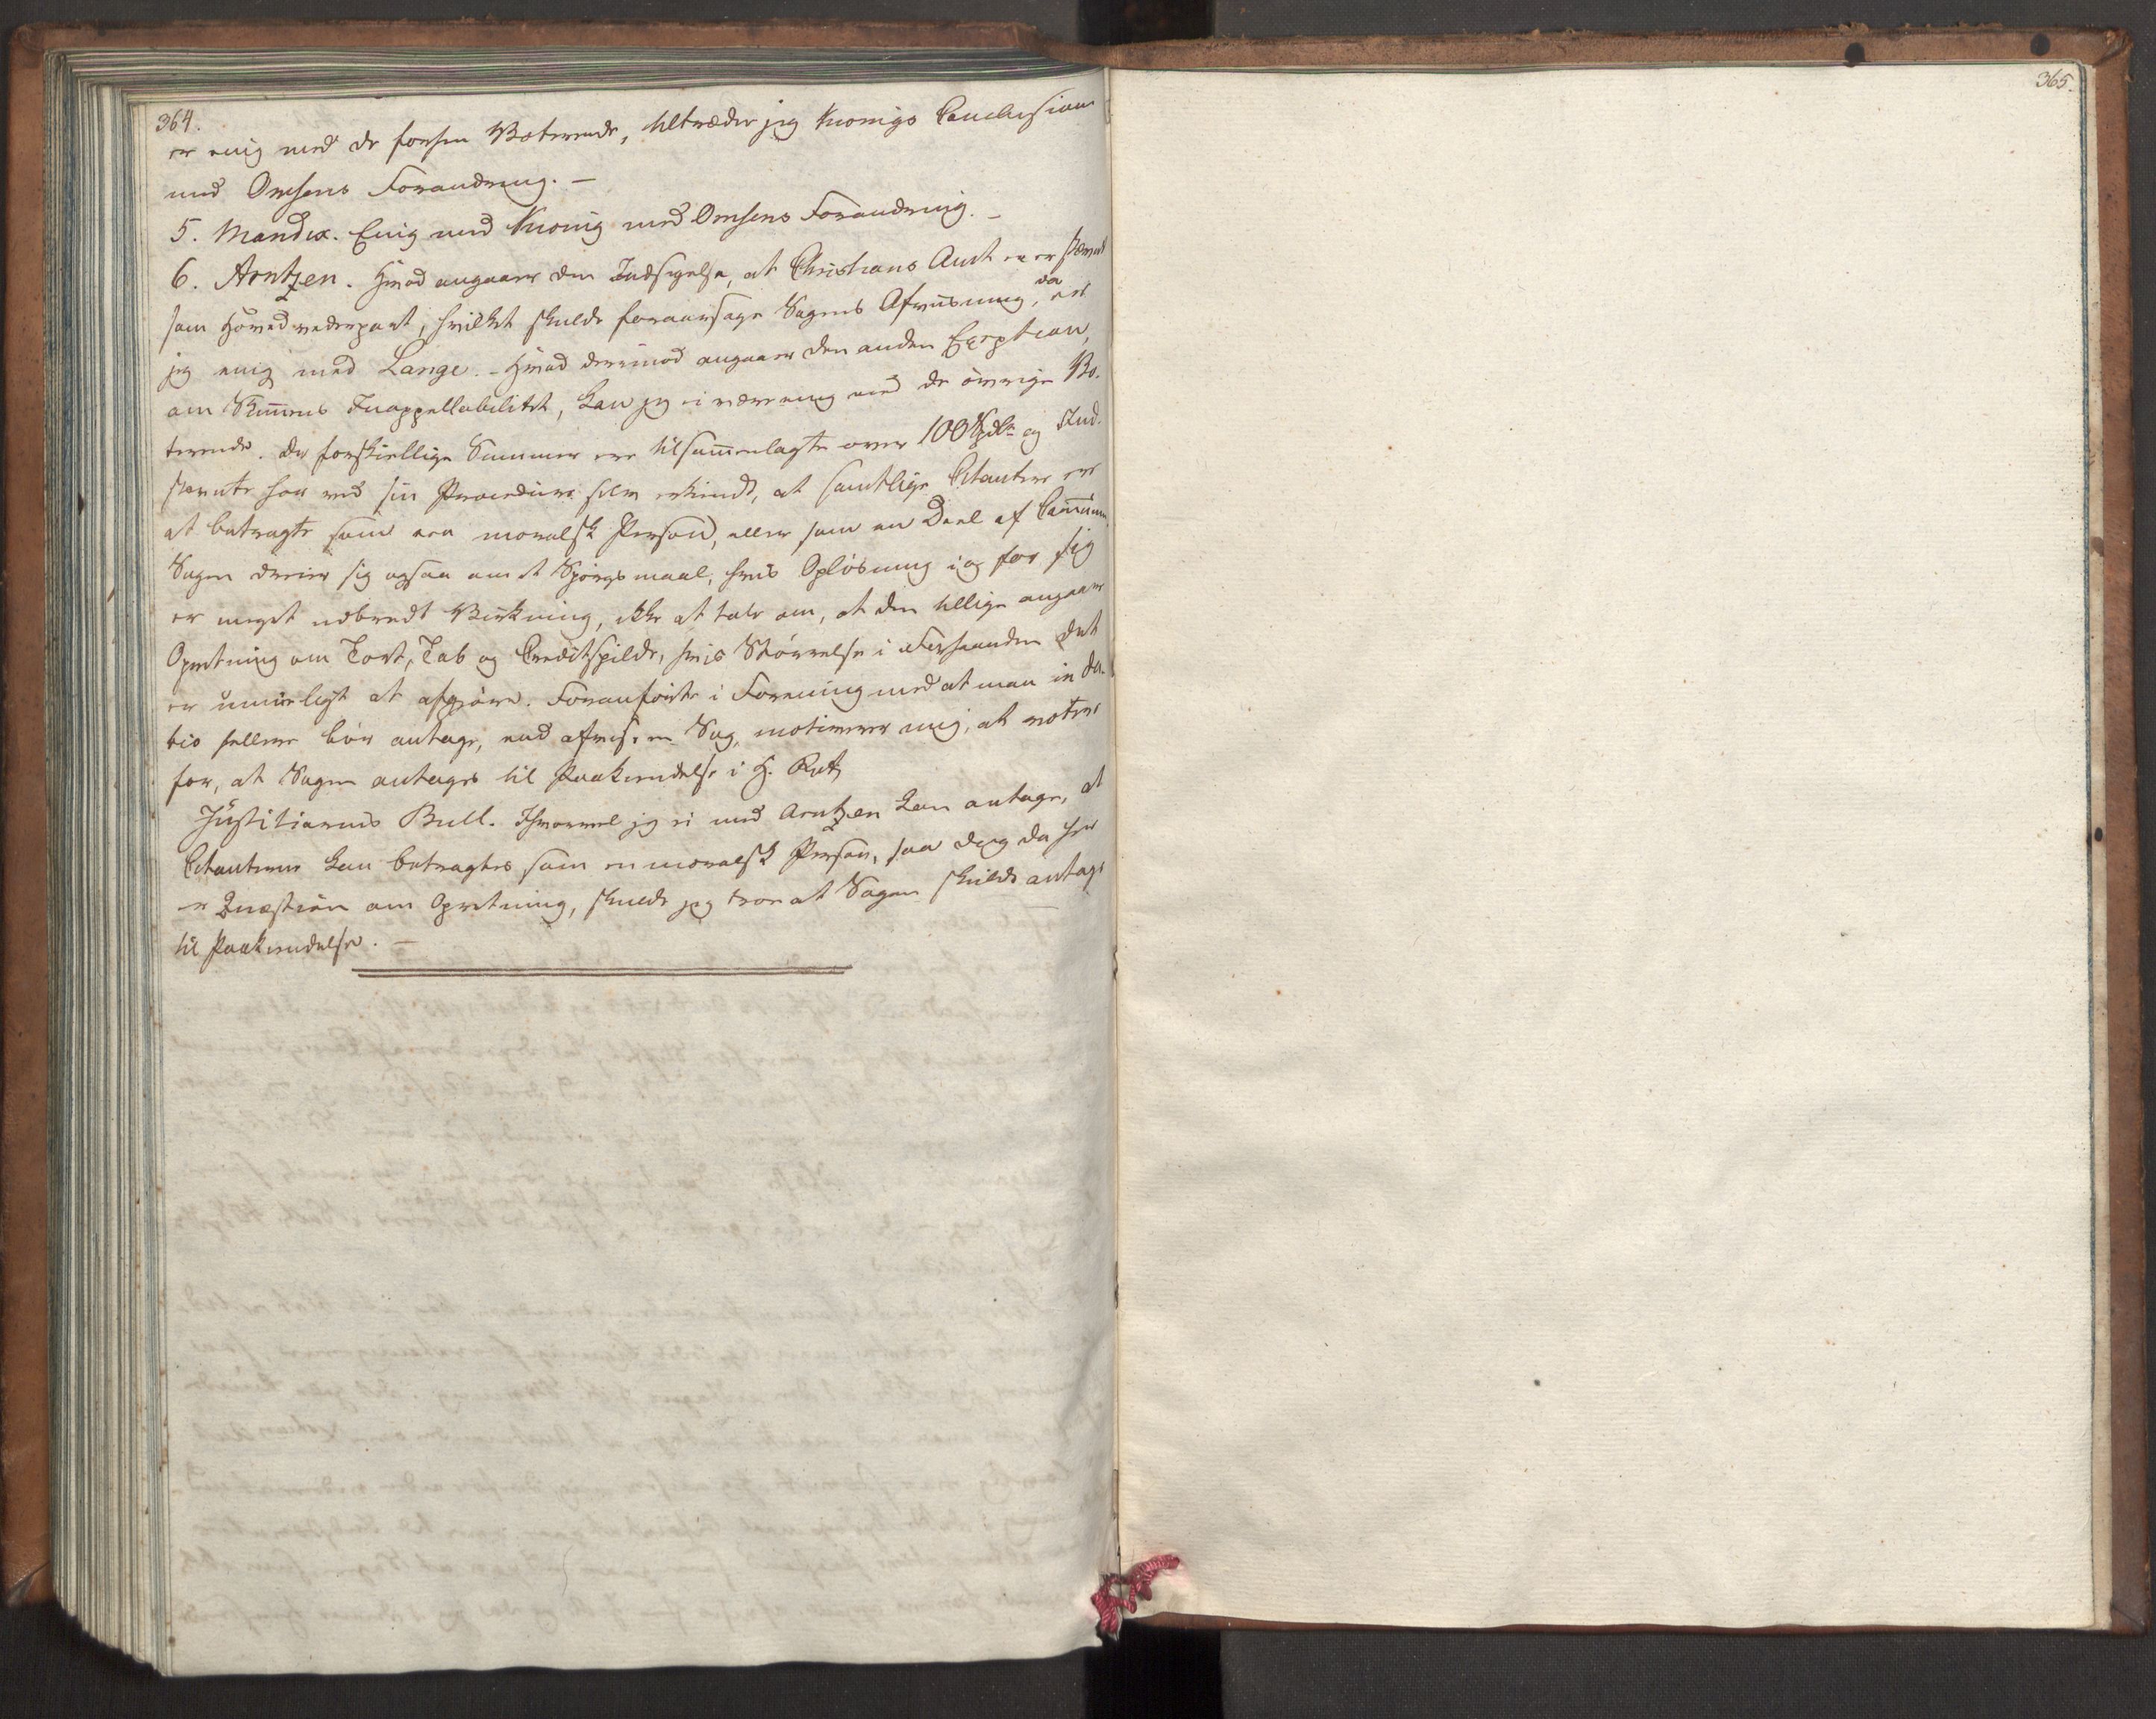 364.
er enig med de forhen Voterende, tiltræder jeg Kronigs Conclusion
med Omsens Forandring. —
5. Mandix. Enig med Kronig med Omsens Forandring. —
6. Arntzen. Hvad angaaer den Indsigelse, at Christians Aust er stævnet
som Hovedvederpart, hvilket skulde foraarsage Sagens Afviisning, da er
jeg enig med Lange. - Hvad derimod angaaer den anden Exception,
om Summens Inappellabilitet, kan jeg ei være enig med de øvrige Vo-
terende. De forskiellige Summer ere tilsammenlagte over 100 Spdlr og Ind-
stevnte har ved sin Procedure selv erkiendt, at samtlige Citanter ere
at betragte som een moralsk Person, eller som en Deel af
Sagen dreier sig ogsaa om et Spørgsmaal, hvis Opløsning i og for sig
er meget udbredt Virkning, ikke at tale om, at den tillige angaaer
Opretning om Tort, Tab og Creditspilde, hvis Størrelse i Forhaanden det
er umueligt at afgjøre. Foranførte i Forening med at man in du-
bio hellere bør antage, end afvise en Sag, motiverer mig, at votere
for, at Sagen antages til Paakiendelse i H. Ret,
Justitiarius Bull. Ihvorvel jeg ei med Arntzen kan antage, at
Citanterne kan betragtes som en moralsk Person, saa dog da her
er Qvæstion om Opretning, skulde jeg troe at Sagen skulde antages
til Paakiendelse. —
365.